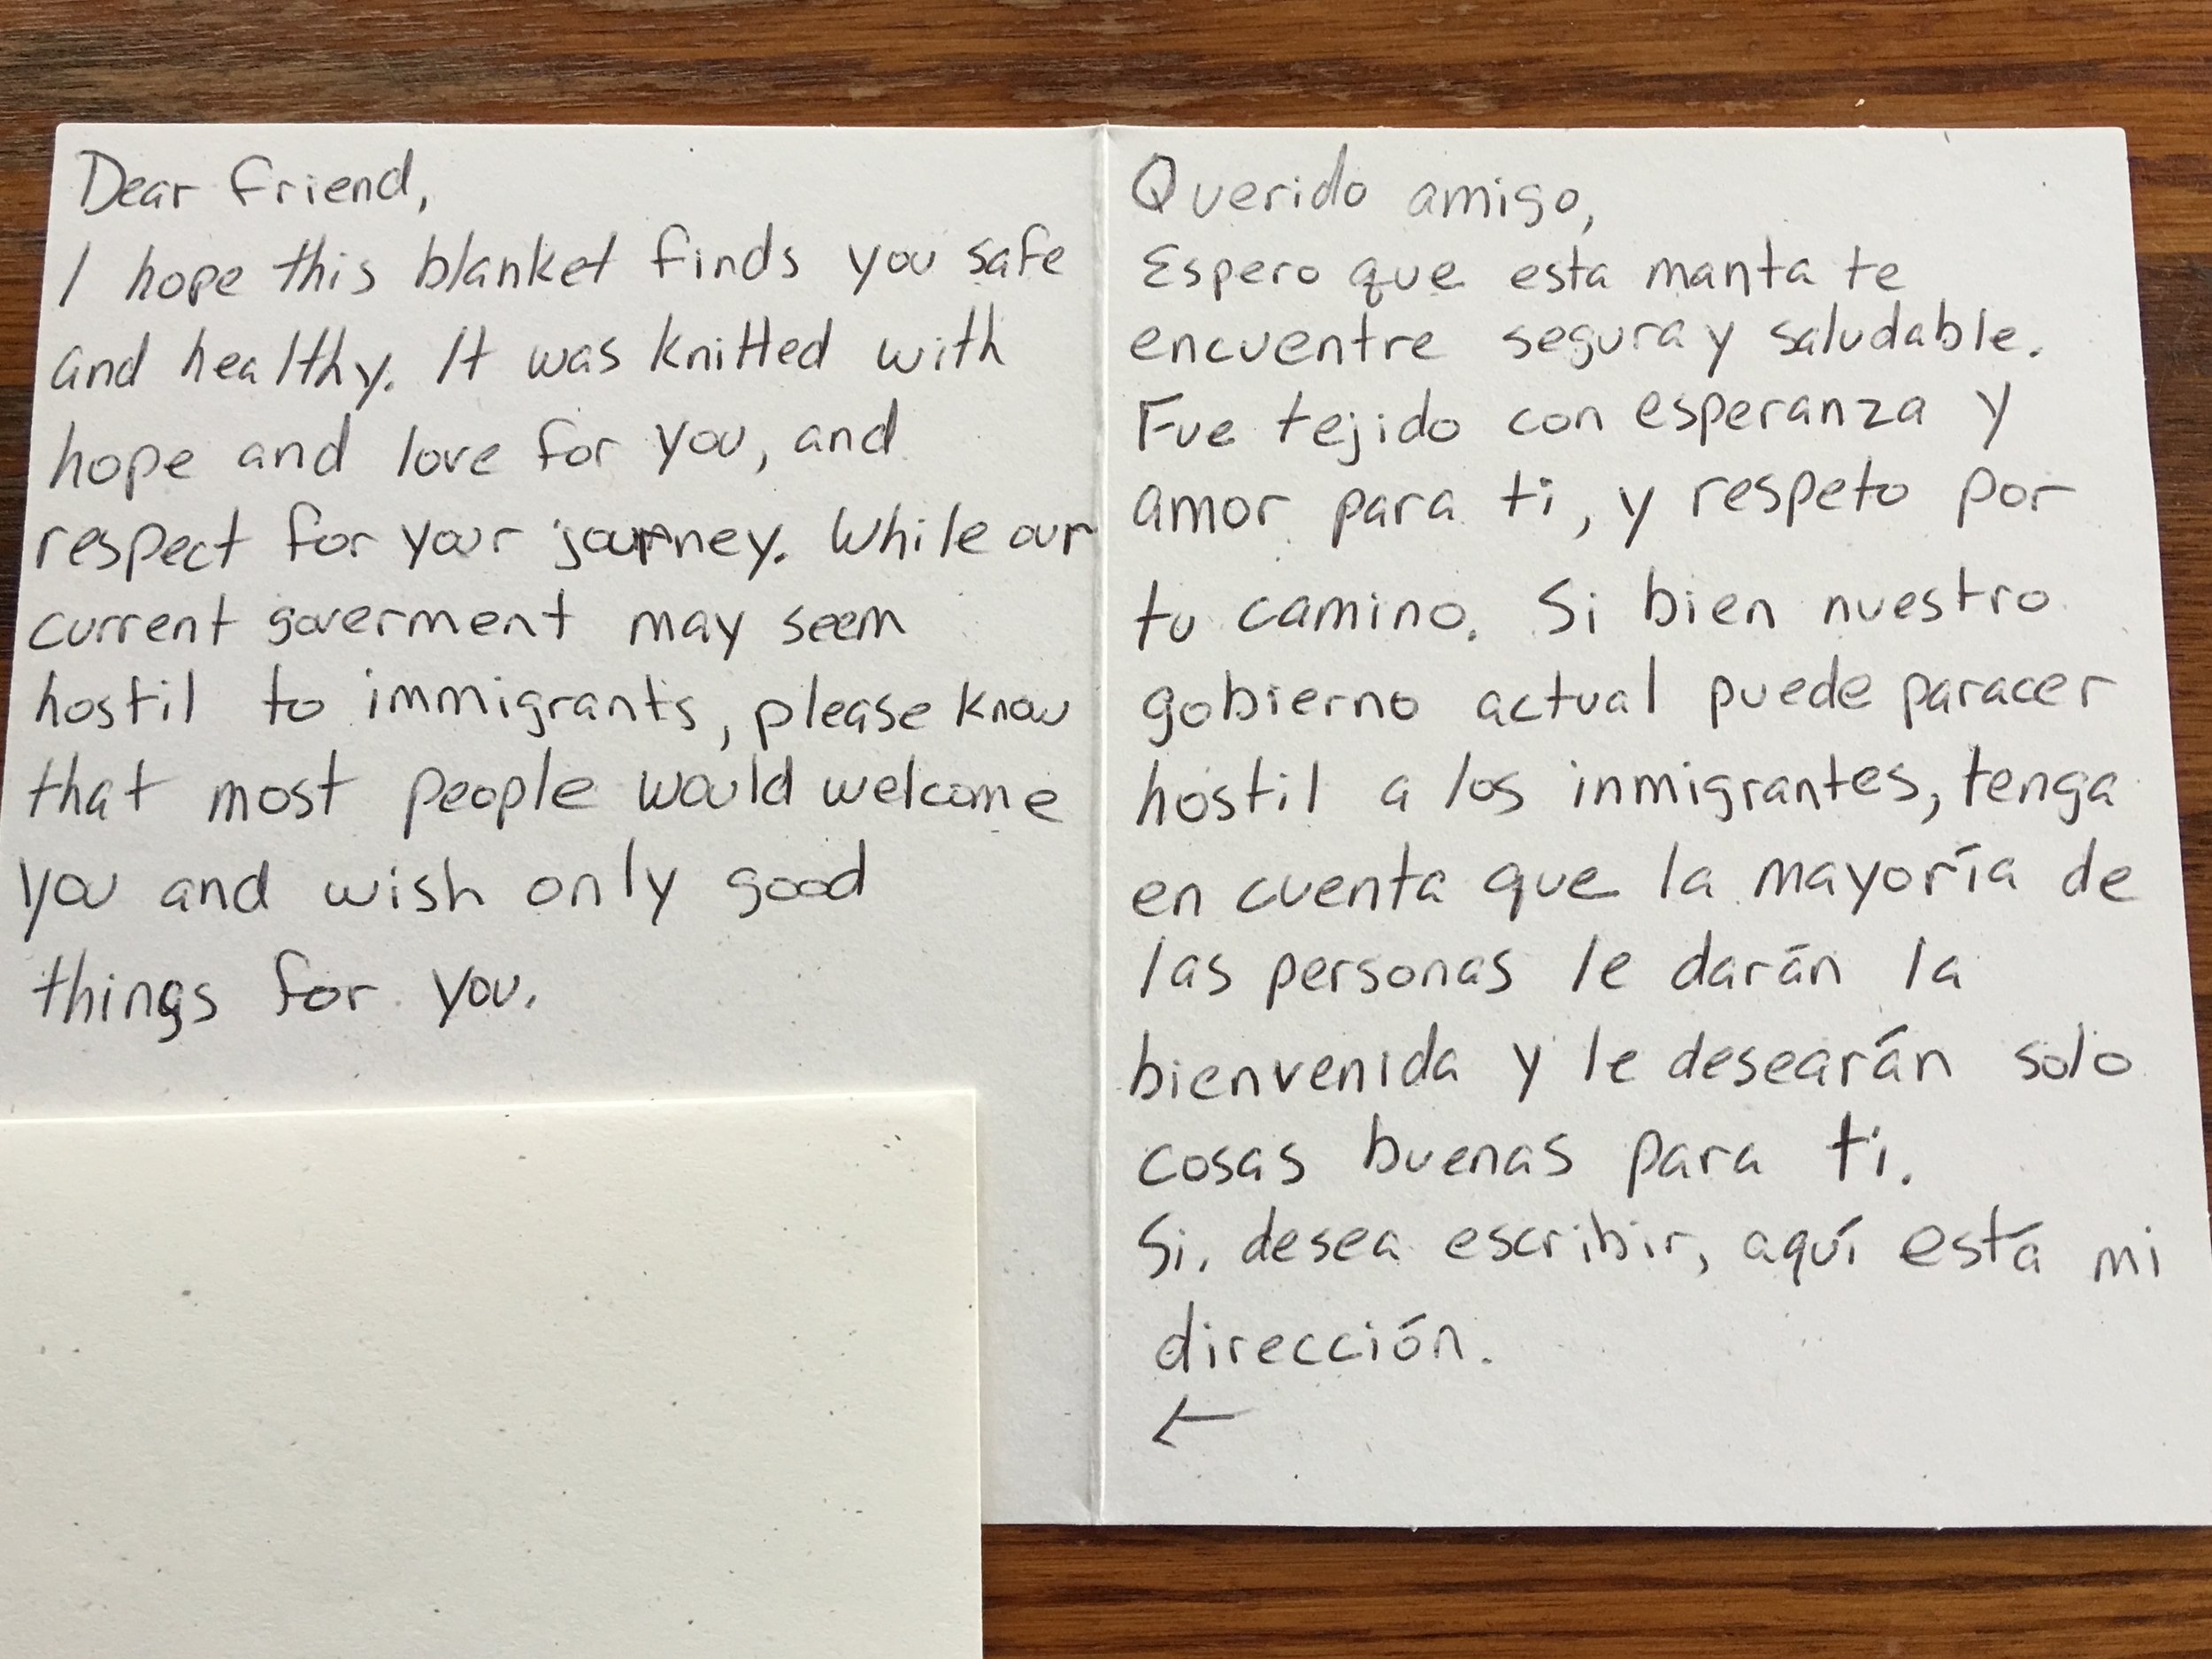 Dear friend,
I hope this blanket finds you safe
and healthy. It was knitted with
hope and love for you, and
respect for your journey. While our
current goverment may seem
hostil to immigrants, please know
that most people would welcome
you and wish only good
things for you.
Querido amigo,
Espero que esta manta te
encuentre segura y saludable.
Fue tejido con esperanza y
amor para ti, y respeto por
tu camino. Si bien nuestro
gobierno actual puede paracer
hostil a los inmigrantes, tenga
en cuenta que la mayoría de
las personas le darán la
bienvenida y le desearán solo
cosas buenas para ti.
Si, desea escribir, aquí está mi
dirección.
←